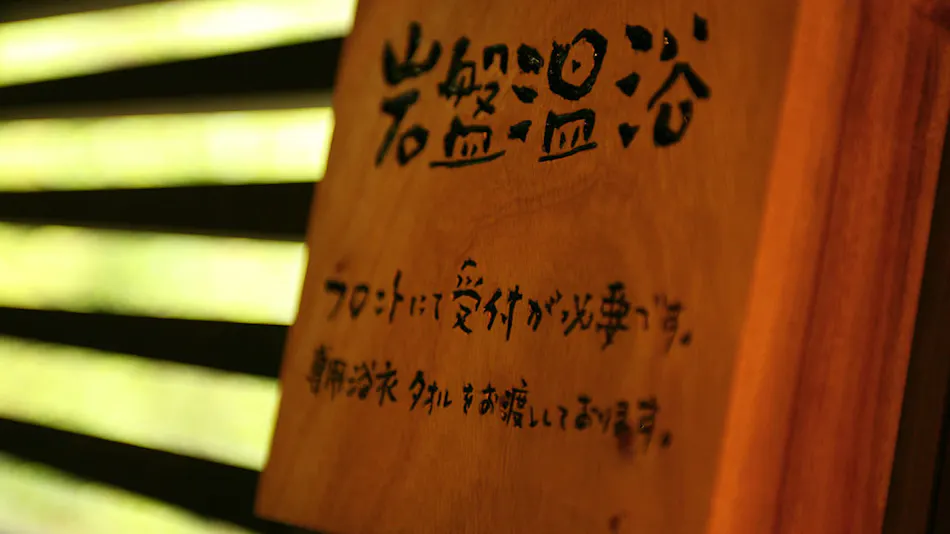 岩盤温浴
フロントにて受付が必要です。
専用浴衣タオルをお渡ししております。